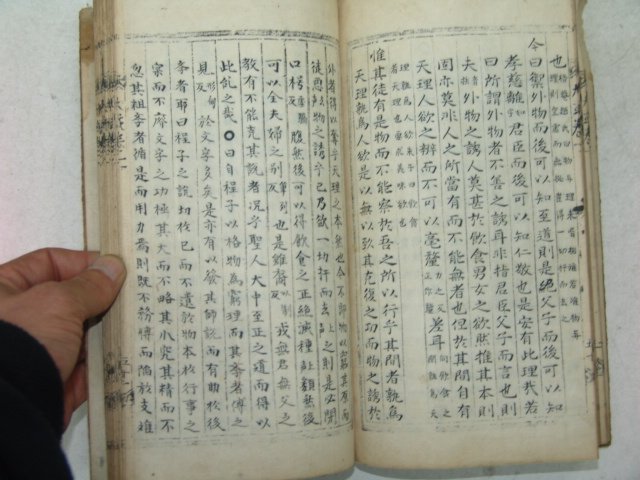 今曰禦外物而後可以知至道則是絕父子而後可以知
孝慈離君臣而後可以知仁敬也是安有此理哉若
曰所謂外物者不善之誘耳非指君臣父子而言也則
夫外物之誘人莫甚於飲食男女之欲然推其本則
固亦莫非人之所當有而不能無者也但於其間自有
天理人欲之辨而不可以毫釐差耳
惟其徒有是物而不能察於吾之所以行乎其間者孰爲
天理孰爲人欲是以無以致其克復之功而物之誘於
外者得以奪乎天理之本然也今不卽物以窮其原而
徒惡物之誘乎己乃欲一切扞而去之則是必閉
口枵腹然後可以得飮食之正絕滅種類然後
可以全夫婦之別也是雖裔戎無君無父之
教有不能充其說者況乎聖人大中至正之道而得以
此亂之哉○曰自程子以格物爲窮理而其學者傳之
見於文字多矣是亦有以發其師說而有助於後
學者耶曰程子之說切於己而不遺於物本於行事之
實而不廢文字之功極其大而不略其小究其精而不
忽其粗學者循是而用力焉則旣不務博而陷於支離